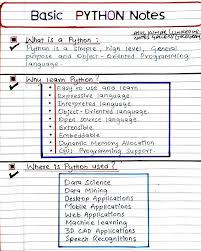 Basic PYTHON Notes
What is a Python :
Python is a simple, high level, General
purpose and Object-Oriented Programming
language.
Why learn Python?
Easy to use and learn.
Expressive language.
Interpreted language.
Object-Oriented language.
Open Source language.
Extensible
Embeddable
Dynamic Memory Allocation
GUI Programming Support.
Where is Python used?
Data Science
Data Mining
Desktop Applications
Mobile Applications
Web Applications
Machine learning
3D CAD Applications
Speech Recognitions